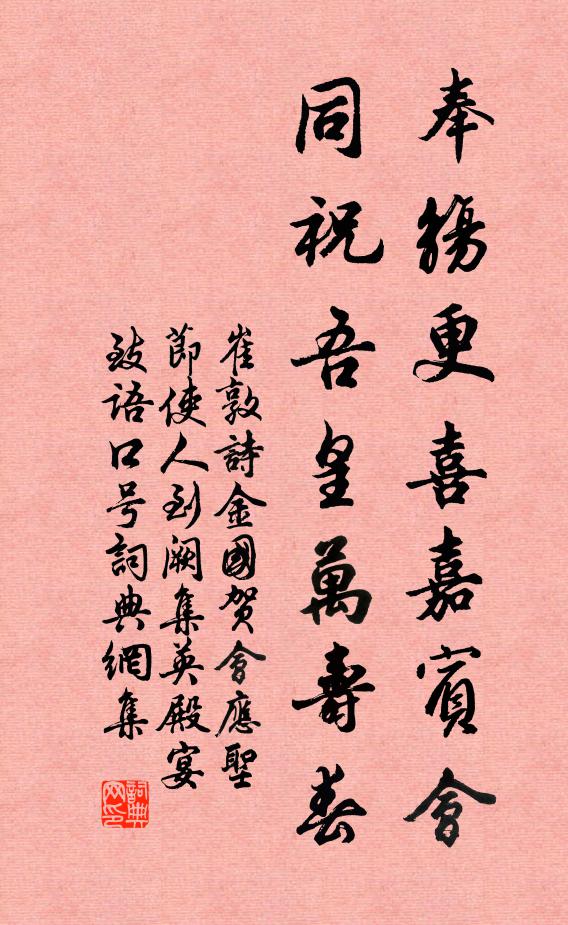 奉觴更喜嘉賓會
同祝吾皇萬壽春
崔敦詩金國賀會應聖
節使人到闕集英殿宴
致語口号詞典網集
詞典网印